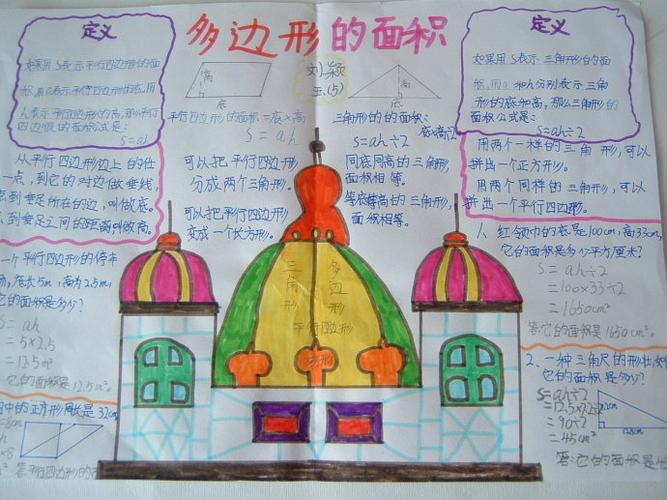 多边形的面积
刘颖
五.(5)
定义
如果用S表示平行四边形的面
积,用a表示平行四边形的底,用
h表示平行四边形的高,那么平行
四边形的面积公式是:
S=ah
从平行四边形边上的任
一点,到它的对边做垂线,
点到垂足所在的边,叫做底。
点到垂足之间的距离叫做高。
一个平行四边形的停车
底长5m,高为2.5m,
它的面积是多少?
S=ah
=5×2.5
=12.5m²
它的面积是12.5m²。
中的正方形周长是32cm,
=8cm
×8
答:平行四边形的
高
底
平行四边形的面积=底×高
S=ah
可以把平行四边形
分成两个三角形.
可以把平行四边形
变成一个长方形.
高
底
三角形的的面积:
底×高÷2
S=ah÷2
同底同高的三角形,
面积相等。
等底等高的三角形,
面积相等。
三角形
多边形
平行四边形
定义
如果用S表示三角形的面
积,用a和h分别表示三角
形的底和高,那么三角形的
面积公式是:
S=ah÷2
用两个一样的三角形,可以
拼出一个正方形。
用两个同样的三角形,可以
拼出一个平行四边形.
1.红领巾的底是100cm,高33cm,
它的面积是多少平方厘米?
S=ah÷2
=100×33÷2
=1650cm²
答:它的面积是1650cm²。
2.一种三角尺的形状,如
它的面积是多少?
S=ah÷2
=90÷2
=45cm²
答:它的面积是